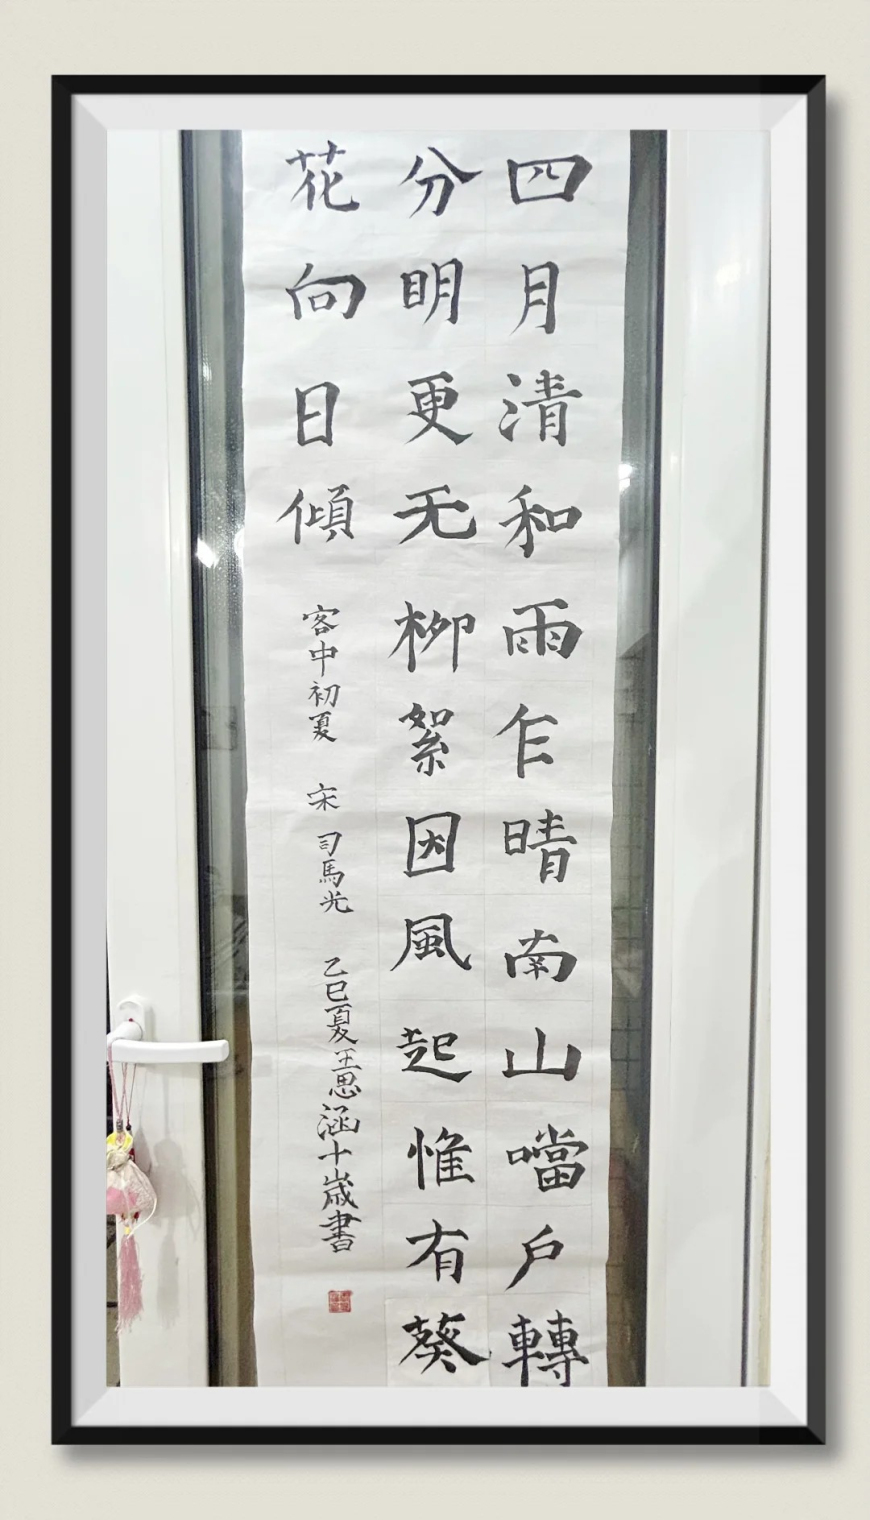 四月清和雨乍晴南山噹户轉
分明更无柳絮因風起惟有葵
花向日傾
客中初夏 宋 司馬光 乙巳夏王思涵十歲書